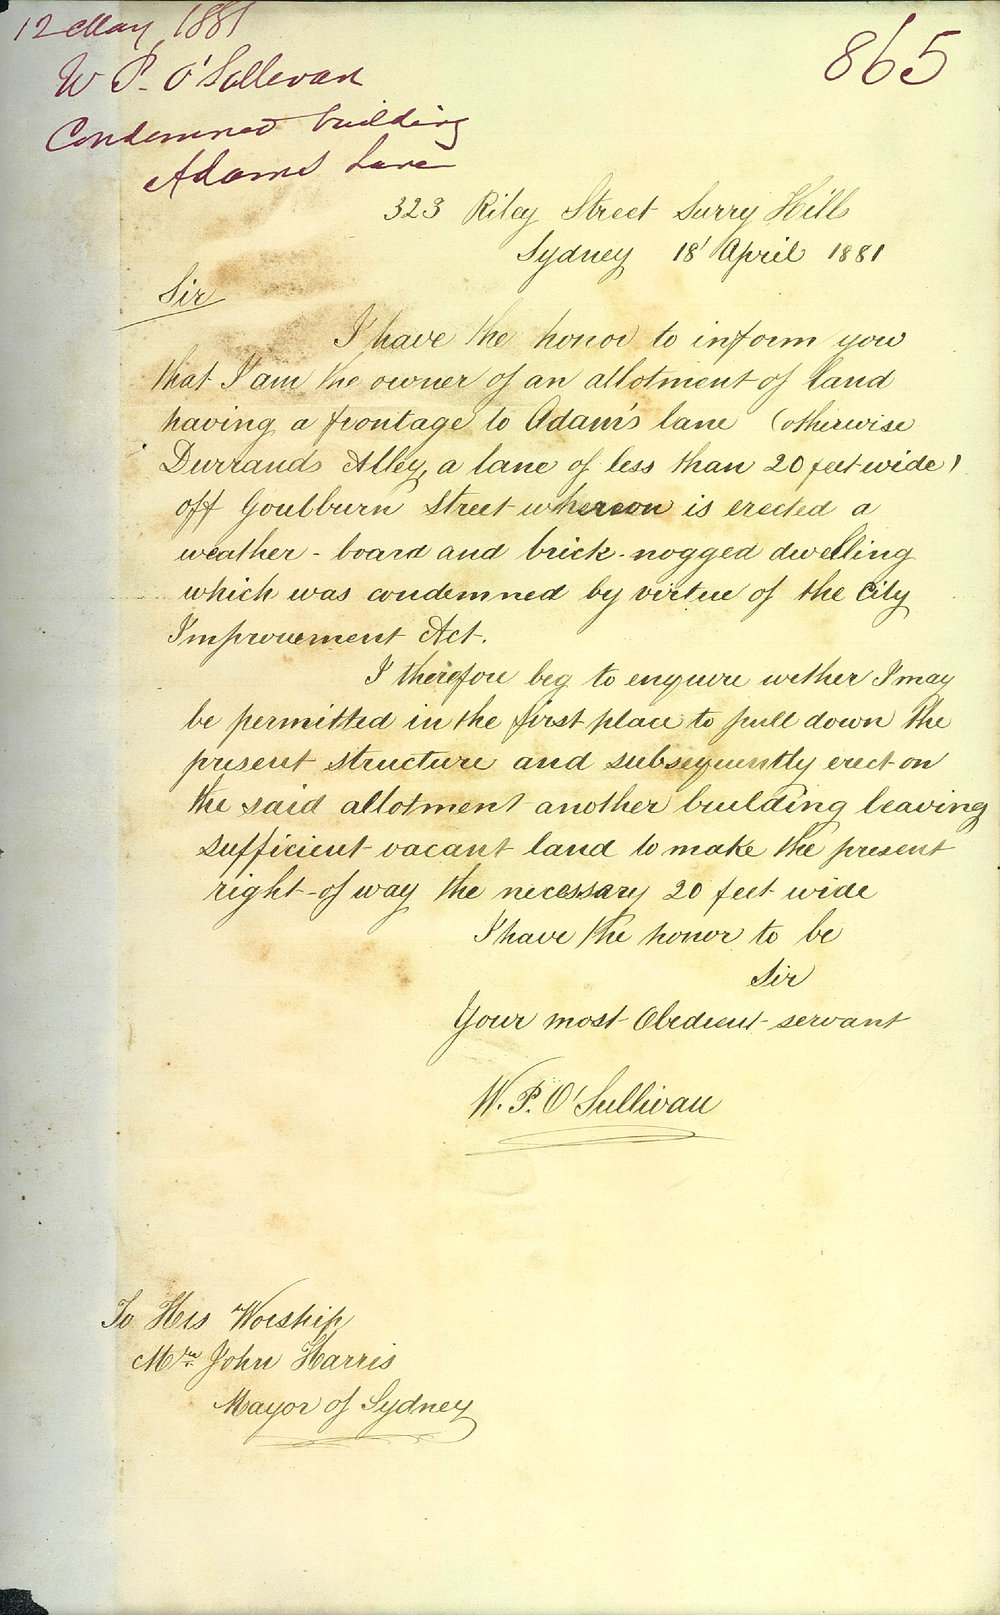 12 May 1881
W P. O'Sullivan
Condemned building
Adams Lane
865
323 Riley Street Surry Hills
Sydney 18' April 1881
Sir
I have the honor to inform you
that I am the owner of an allotment of land
having a frontage to Adam's lane (otherwise
Durrands Alley, a lane of less than 20 feet wide)
off Goulburn Street whereon is erected a
weather-board and brick-nogged dwelling
which was condemned by virtue of the City
Improvement Act.
I therefore beg to enquire wether I may
be permitted in the first place to pull down the
present structure and subsequently erect on
the said allotment another building leaving
sufficient vacant land to make the present
right-of way the necessary 20 feet wide
I have the honor to be
Sir
Your most Obedient servant
W. P. O'Sullivan
To His Worship
John Harris
Mayor of Sydney